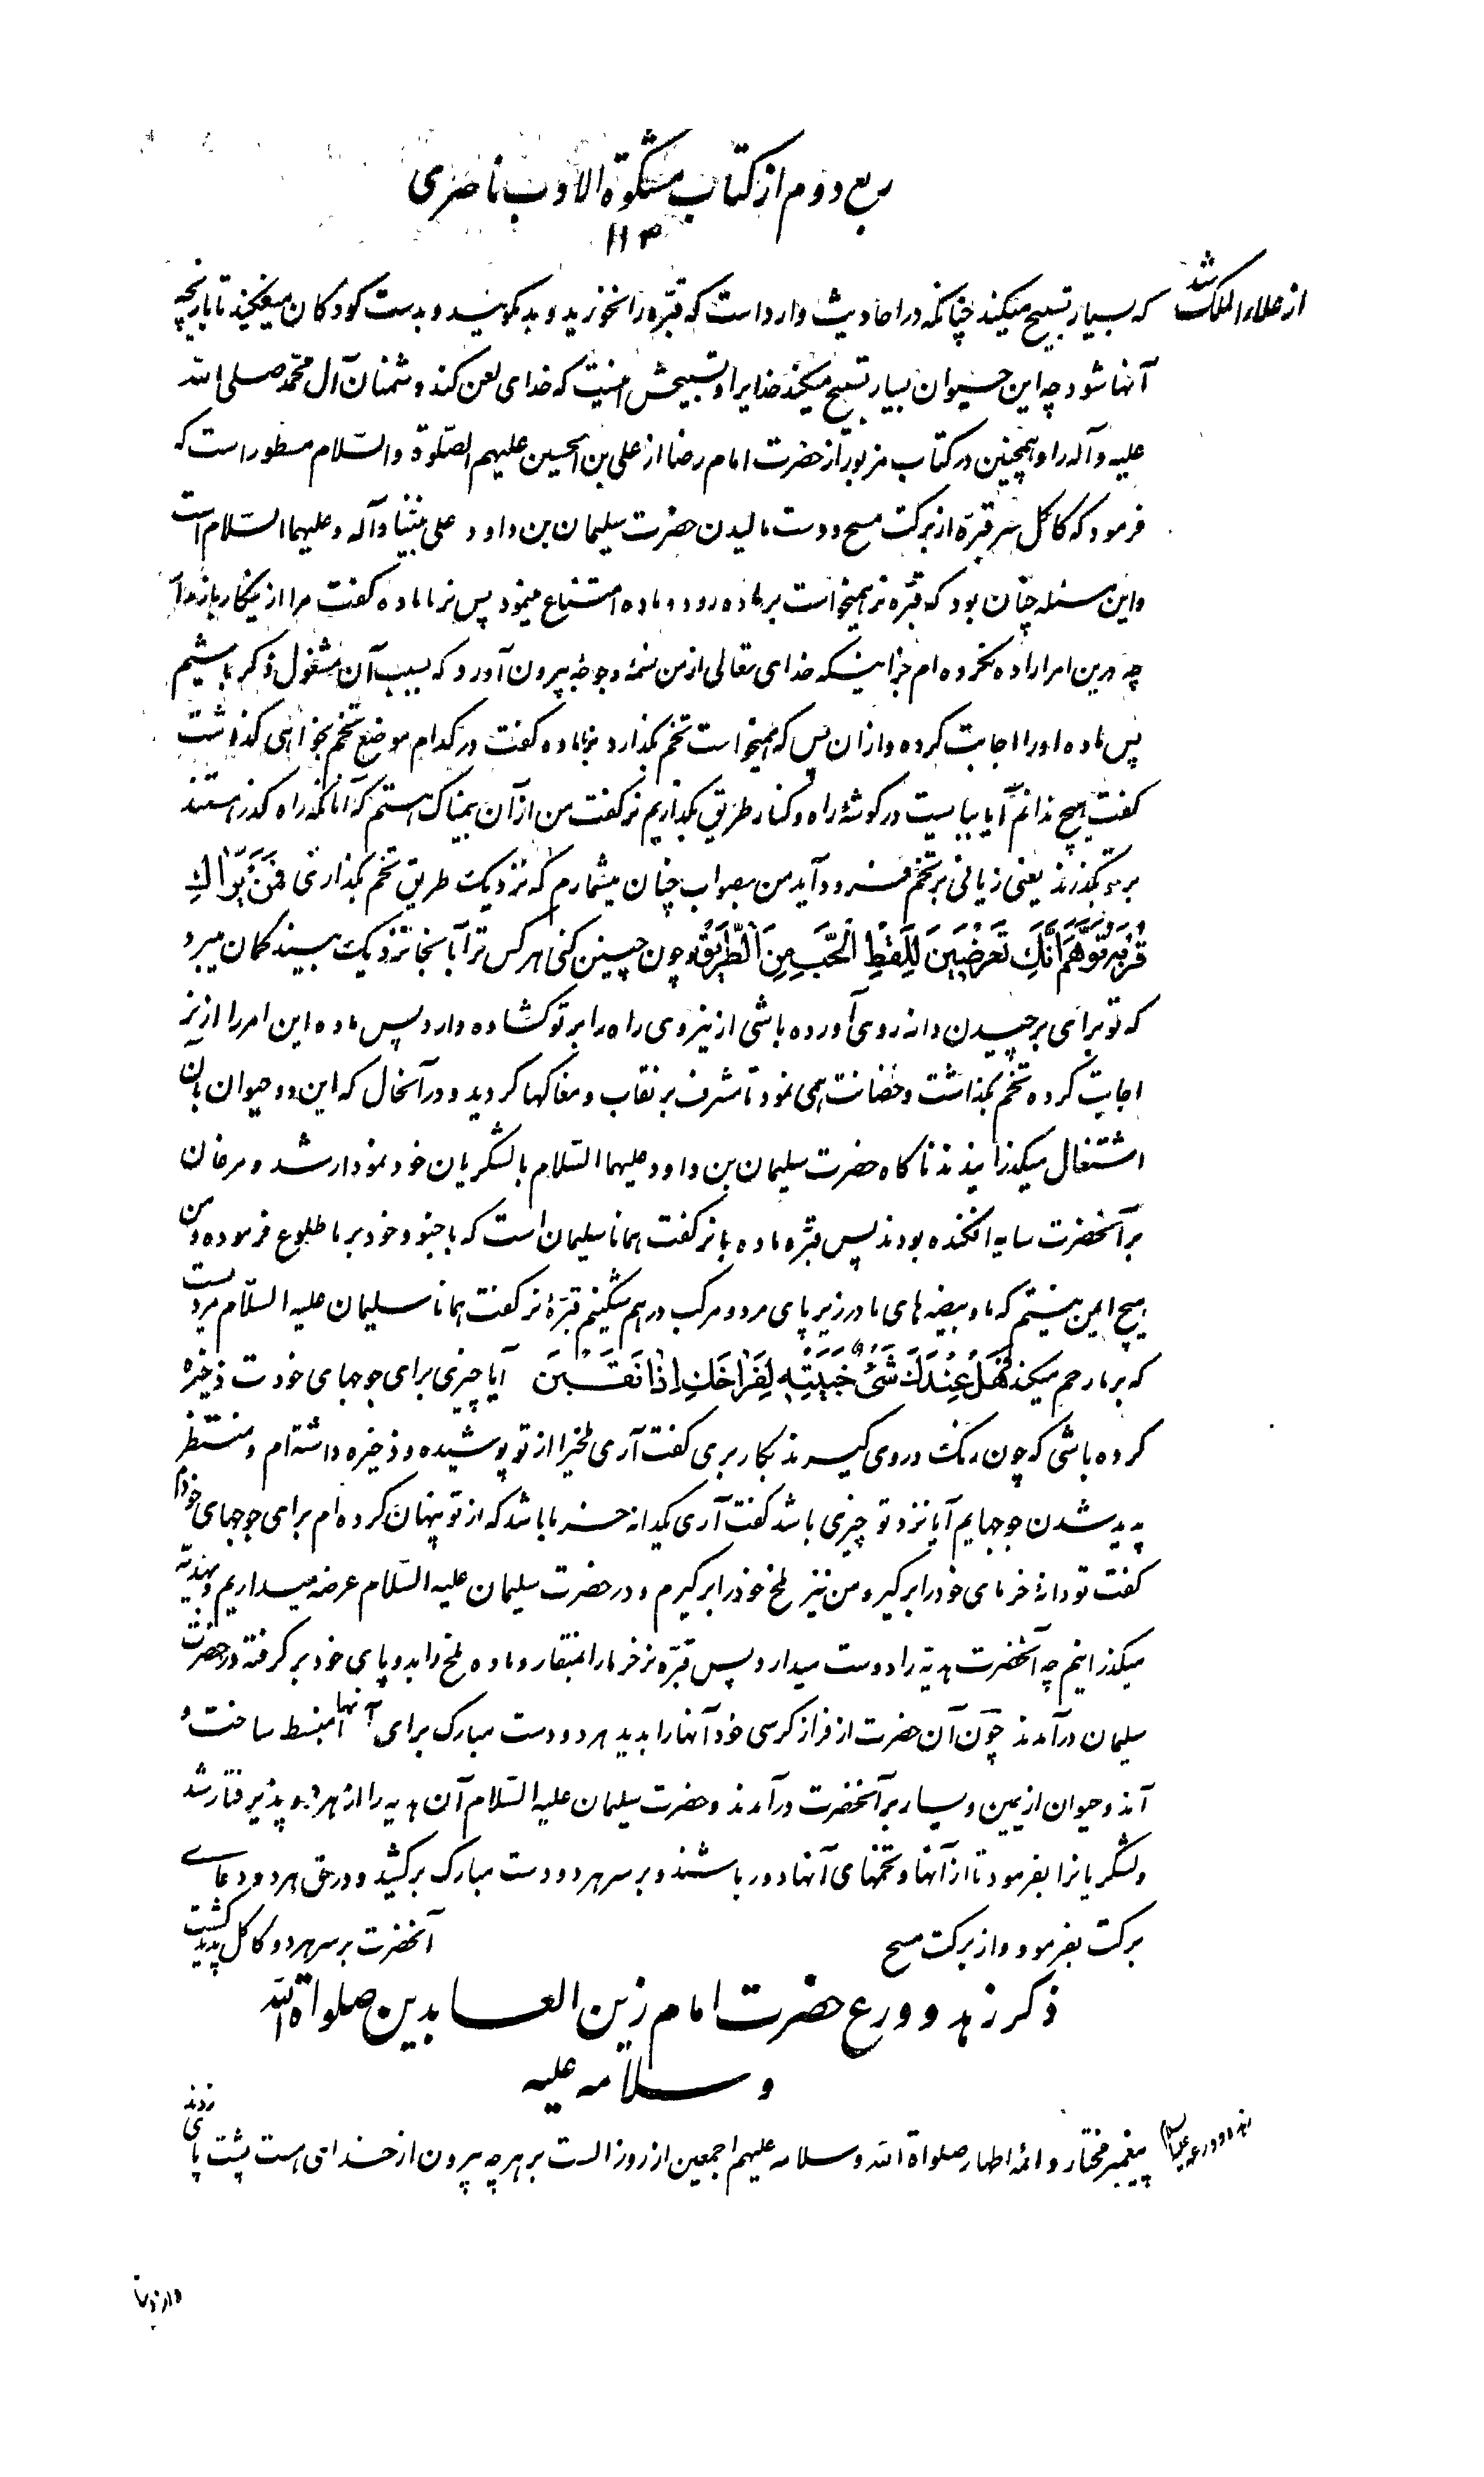 ربع دوم از کتاب مشکوة الادب ناصری
۱۱۳
از علاء الملک شد
که بسیار تسبیح میکند چنانکه در احادیث وارد است که قبّره را نخورید و بد مگوئید و بدست کودکان میفکنید تا بازیچه
آنها شود چه این حیوان بسیار تسبیح میکند خدایرا و تسبیحش اینست که خدای لعن کند دشمنان آل محمّد صلی الله
علیه و آله را و همچنین در کتاب مزبور از حضرت امام رضا از علی بن الحسین علیهم الصّلوة والسّلام مسطور است که
فرمود که کاکل سر قبرّه از برکت مسح و دست مالیدن حضرت سلیمان بن داود علی نبیّنا و آله و علیهما السّلام است
و این مسئله چنان بود که قبّره نر همیخواست بر ماده رود و ماده امتناع مینمود پس نر با ماده گفت مرا ازینکار باز مدار
چه درین امر اراده نکرده ام جز اینکه خدای تعالی از من نسمهٔ و جوجهٔ بیرون آورد که بسبب آن مشغول ذکر باشیم
پس ماده او را اجابت کرده و از ان پس که همیخواست تخم بگذارد نر با ماده گفت در کدام موضع تخم بخواهی گذاشت
گفت هیچ ندانم آیا ببایست در گوشهٔ راه و کنار طریق بگذاریم نر گفت من از آن بیمناک هستم که آنانکه راه گذر هستند
بر تو بگذرند یعنی زیانی بر تخم فرود آید من بصواب چنان میشمارم که نزدیک طریق تخم بگذاری فَمَنْ یَرٰاكِ
قُرْبَهُ تَوَهَّمَ اَنَّكِ تَعَرَّضْتِینَ لِلَقْطِ الْحَبِّ مِنَ الطَّرِیقِ و چون چنین کنی هر کس ترا بآنجا نزدیک ببیند گمان میبرد
که تو برای برچیدن دانه روی آورده باشی ازینروی راه را بر تو گشاده دارد پس ماده این امر را از نر
اجابت کرده تخم بگذاشت و حضانت همی نمود تا مشرف بر نقاب و مغاکها گردید و در آنحال که این دو حیوان بآن
اشتغال میگذرانیدند ناگاه حضرت سلیمان بن داود علیهما السّلام با لشگریان خود نمودار شد و مرغان
بر آنحضرت سایه افکنده بودند پس قبّره ماده با نر گفت همانا سلیمان است که با جنود خود بر ما طلوع فرموده و من
هیچ ایمن نیستم که ما و بیضه های ما در زیر پای مرد و مرکب درهم شکنیم قبّرهٔ نر گفت همانا سلیمان علیه السّلام مردیست
که بر ما رحم میکند فَهَلْ عِنْدَكِ شَیْءٌ خَبَیْتِهِ لِفِرٰاخِكِ اِذٰا نَقَبْنَ آیا چیزی برای جوجهای خودت ذخیره
کرده باشی که چون رنگ و روی گیرند بکار بری گفت آری ملخیرا از تو پوشیده و ذخیره داشته ام و منتظر
پدید شدن جوجهایم آیا نزد تو چیزی باشد گفت آری یکدانه خرما باشد که از تو پنهان کرده ام برای جوجهای خودم
گفت تو دانهٔ خرمای خود را برگیر و من نیز ملخ خود را برگیرم و در حضرت سلیمان علیه السّلام عرضه میداریم و هدیّه
میگذرانیم چه آنحضرت هدیّه را دوست میدارد پس قبّره نر خرما را بمنقار و ماده ملخ را بدو پای خود برگرفته در حضرت
سلیمان درآمدند چون آن حضرت از فراز کرسی خود آنها را بدید هر دو دست مبارک برای آنها منبسط ساخت و
آندو حیوان از یمین و یسار بر آنحضرت درآمدند و حضرت سلیمان علیه السّلام آن هدیه را از هر دو پذیرفتار شد
و لشگریانرا بفرمود تا از آنها و تخمهای آنها دور باشند و بر سر هر دو دست مبارک برکشید و در حق هر دو دعای
برکت بفرمود و از برکت مسح آنحضرت بر سر هر دو کاکل پدید گشت
ذکر زهد و ورع حضرت امام زین العابدین صلواة الله
و سلامه علیه
زهد و ورع علیه السلام
پیغمبر مختار و ائمهٔ اطهار صلواة الله و سلامه علیهم اجمعین از روز الست بر هر چه بیرون از خدای است پشت پای زدند
و از دنیا